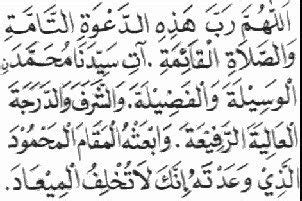 اَللّٰهُمَّ رَبَّ هَذِهِ الدَّعْوَةِ التَّامَّةِ
وَالصَّلَاةِ الْقَائِمَةِ. آتِ سَيِّدَنَا مُحَمَّدَنِ
الْوَسِيْلَةَ وَالْفَضِيْلَةَ. وَالشَّرَفَ وَالدَّرَجَةَ
الْعَالِيَةَ الرَّفِيْعَةَ. وَابْعَثْهُ الْمَقَامَ الْمَحْمُوْدَ
الَّذِيْ وَعَدْتَهُ إِنَّكَ لَا تُخْلِفُ الْمِيْعَادَ.